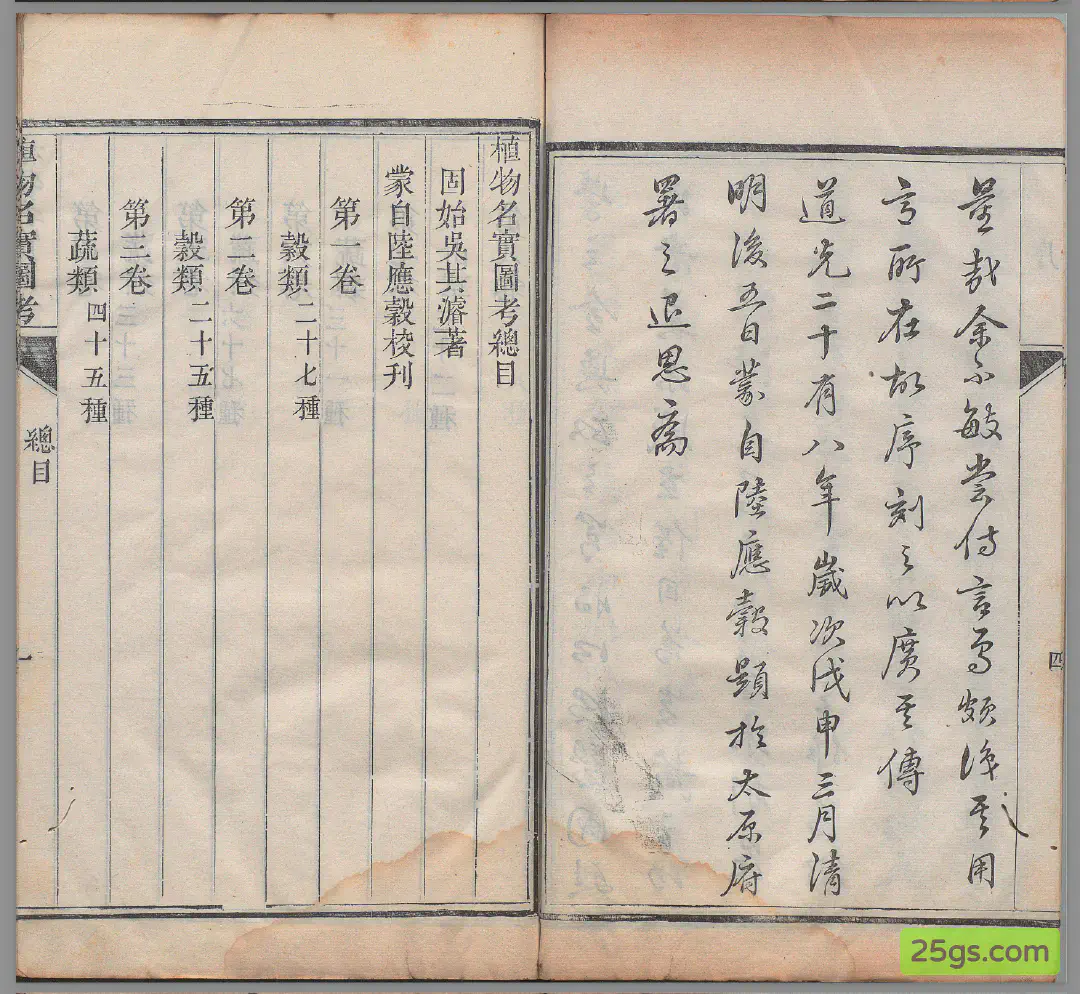 四
量哉余不敏嘗侍言焉頗識其用
意所在故序刻之以廣其傳
道光二十有八年歲次戊申三月清
明後五日蒙自陸應穀題於太原府
署之退思齋
植物名實圖考總目
固始吳其濬著
蒙自陸應穀校刊
第一卷
穀類二十七種
第二卷
穀類二十五種
第三卷
蔬類四十五種
植物名實圖考 總目 一
25gs.com